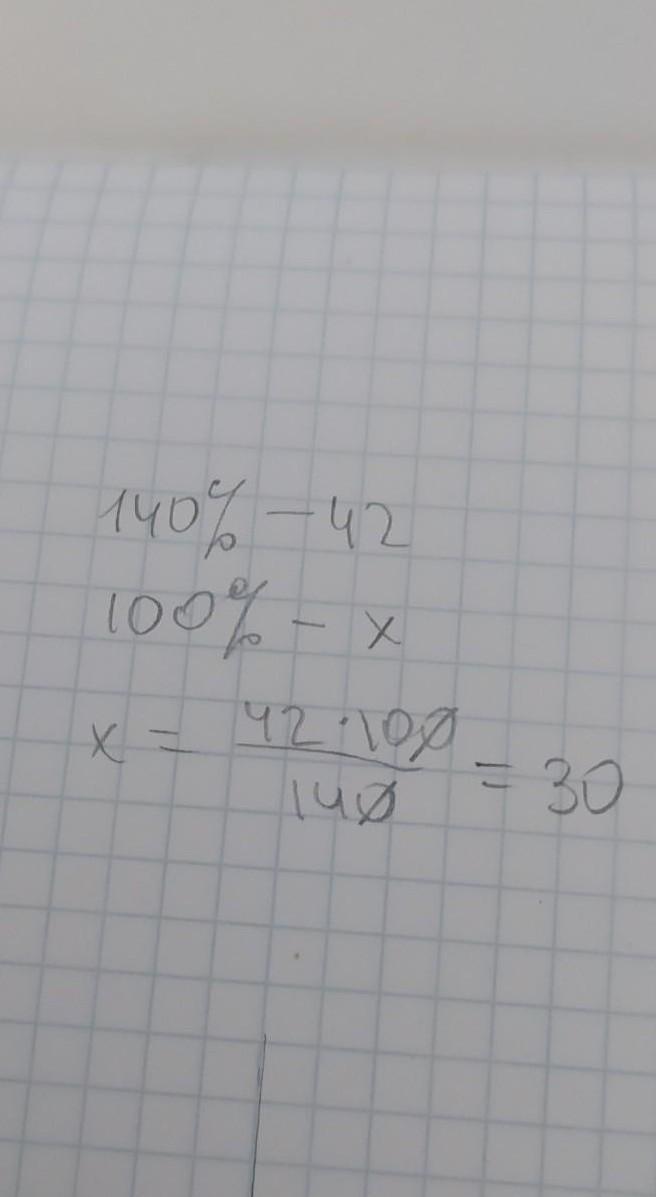 140% - 42
100% - x
x = 42·100/140 = 30